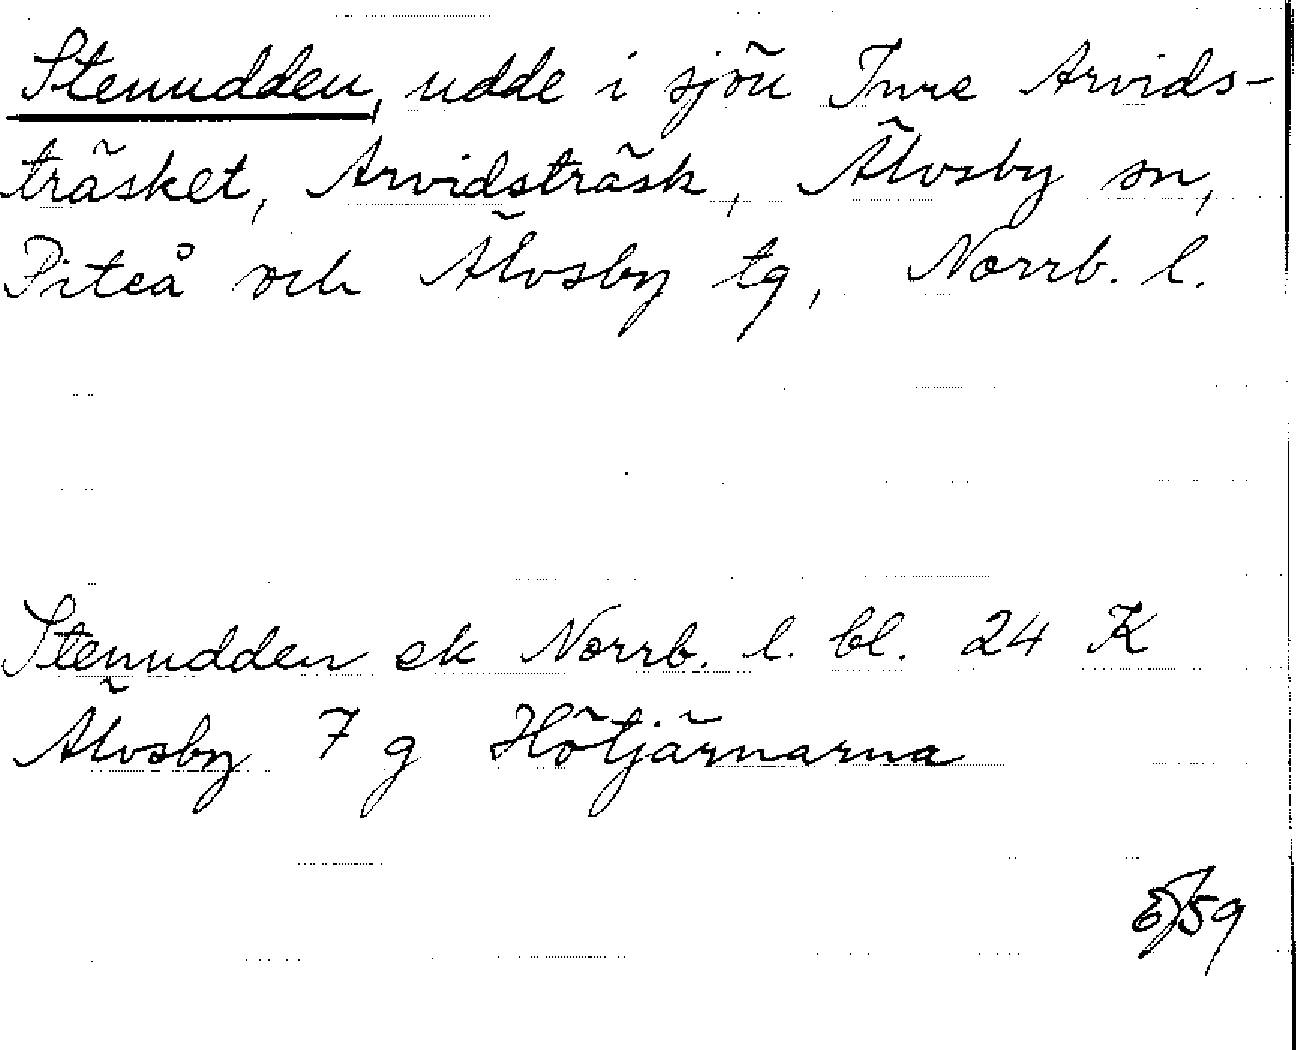 Stenudden, udde i sjön Inre Arvids-
träsket, Arvidsträsk, Älvsby sn,
Piteå och Älvsby tg, Norrb. l.
Stenudden ek Norrb. l. bl. 24 K
Älvsby 7 g Hötjärnarna
59